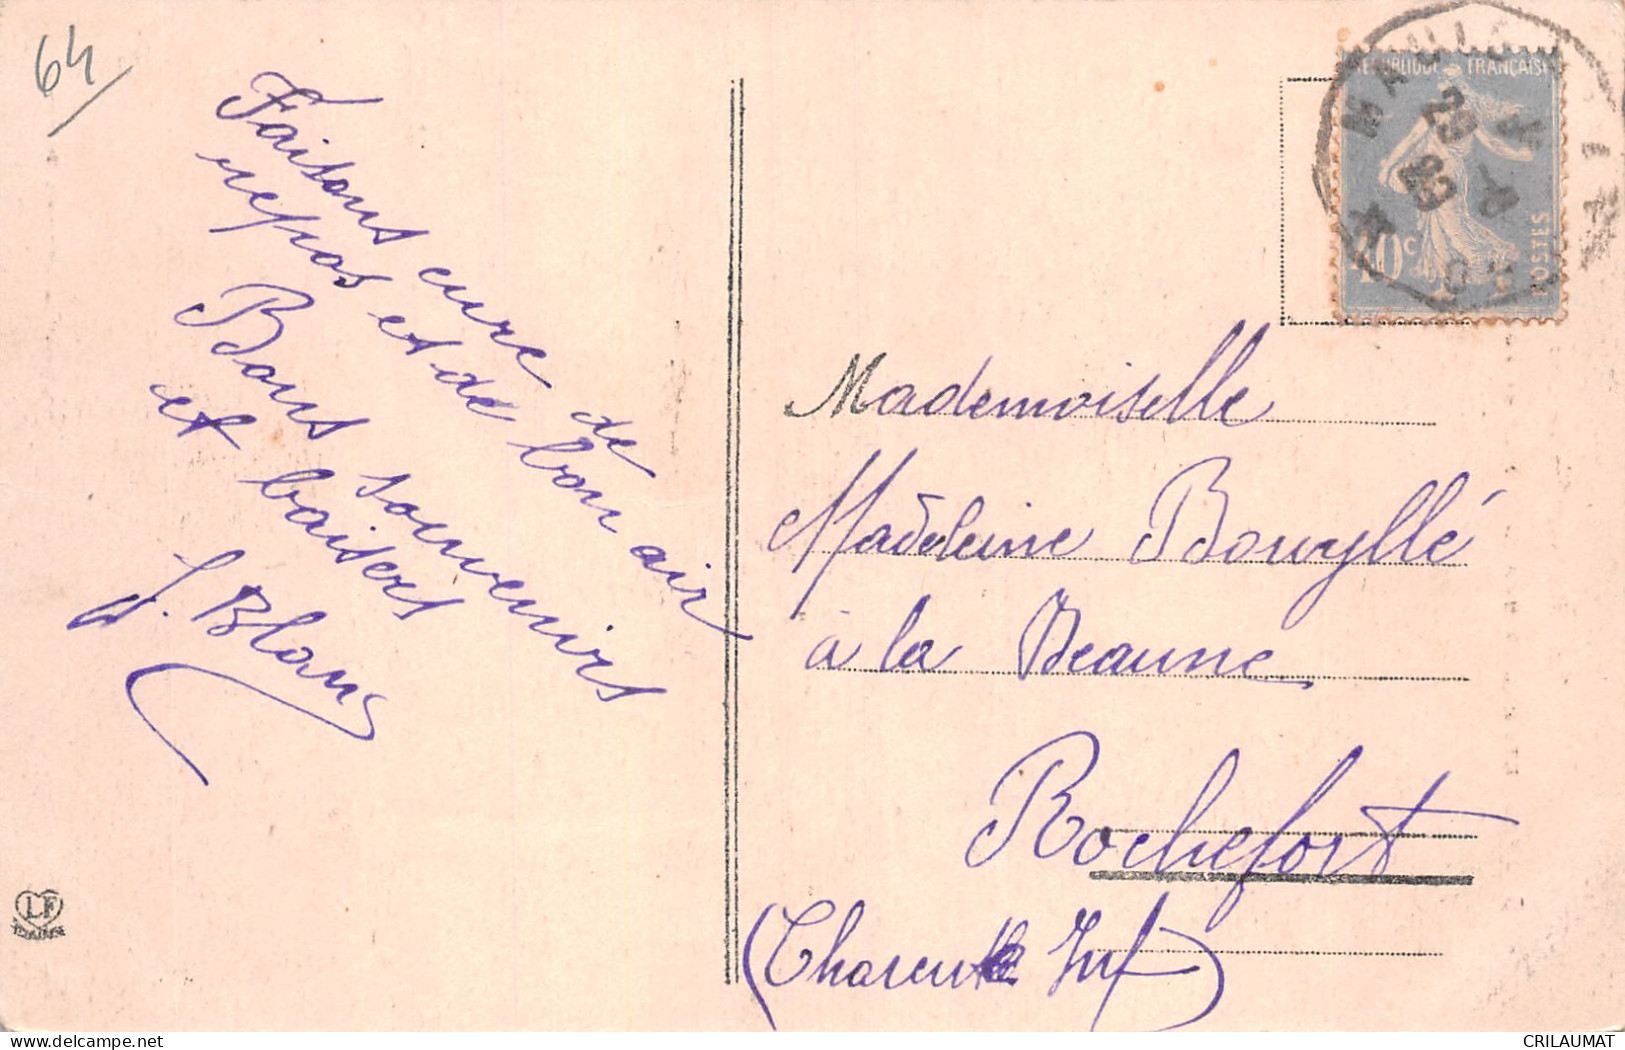 64
Faisons cure de
repos et de bon air
Bons souvenirs
et baisers
J. Blanc
REPUBLIQUE FRANÇAISE
40c
POSTES
Mademoiselle
Madeleine Bouyllé
à la Beaune
Rochefort
(Charente Inf)
LF
CRILAUMAT